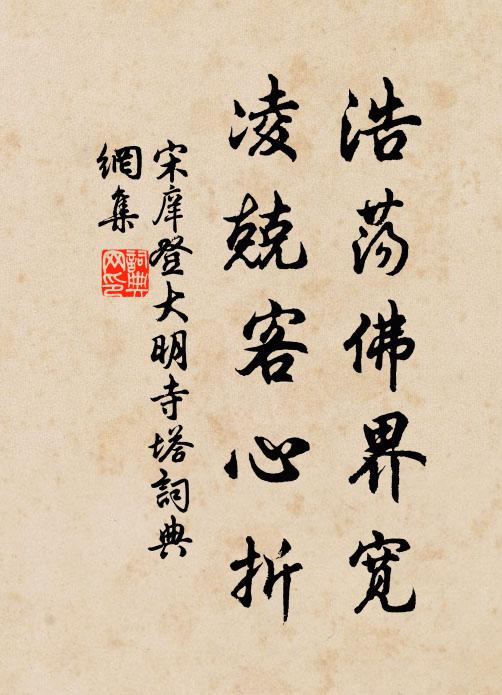 浩荡佛界寛
凌兢客心折
宋庠登大明寺塔詞典
網集
詞典网印